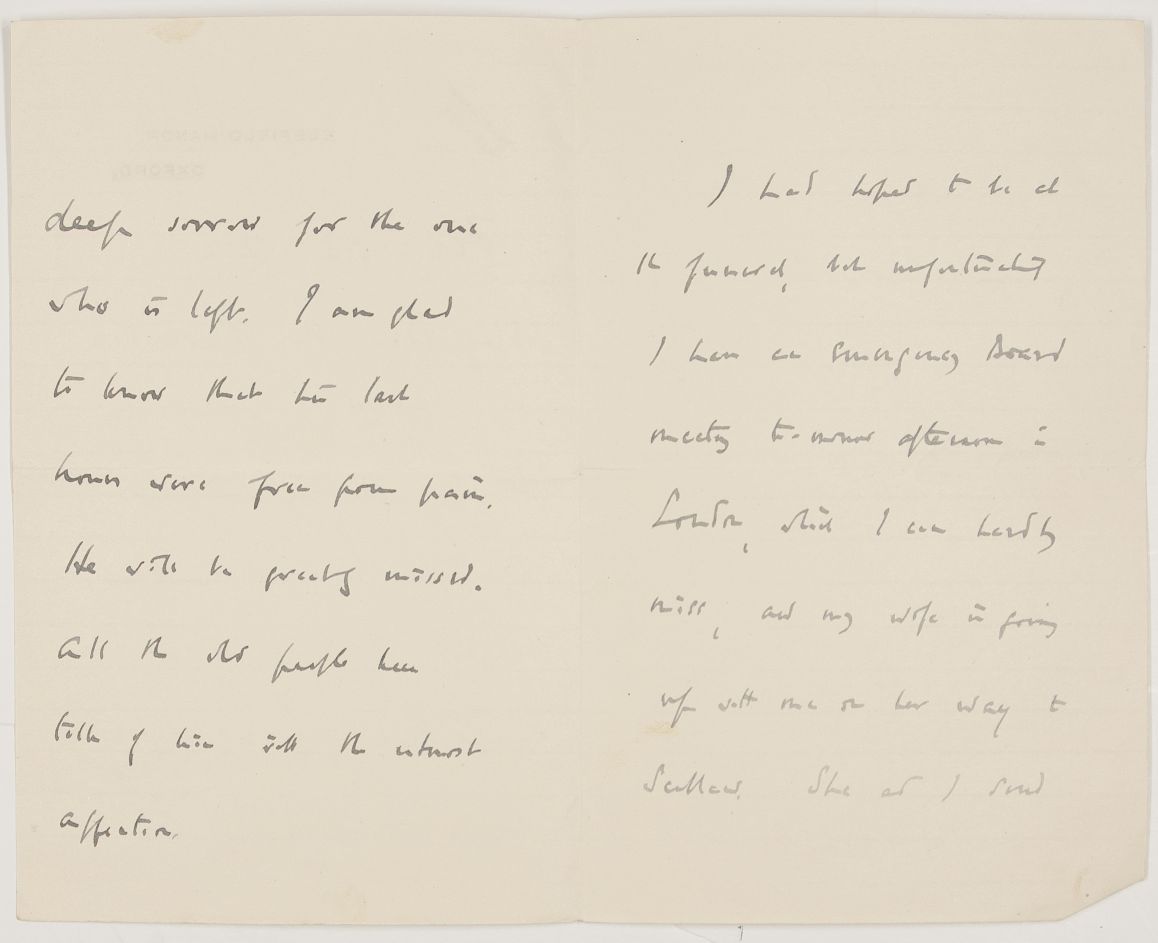 deep sorrow for the one
who is left. I am glad
to know that his last
hours were free from pain.
He will be greatly missed.
All the old people here
talk of him with the utmost
affection.
I had hoped to be at
the funeral, but unfortunately
I have an emergency Board
meeting to-morrow afternoon in
London, which I can hardly
miss, and my wife is going
up with me on her way to
Scotland. She and I send
ELSFIELD MANOR
OXFORD,